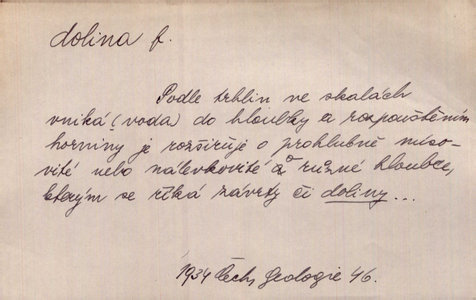 dolina f.
Podle trhlin ve skalách
vniká (voda) do hloubky a rozpouštěním
horniny je rozšiřuje o prohlubně míso-
vité nebo nálevkovité různé hloubce,
kterým se říká závrty či doliny...
1934 Čech, Geologie 46.